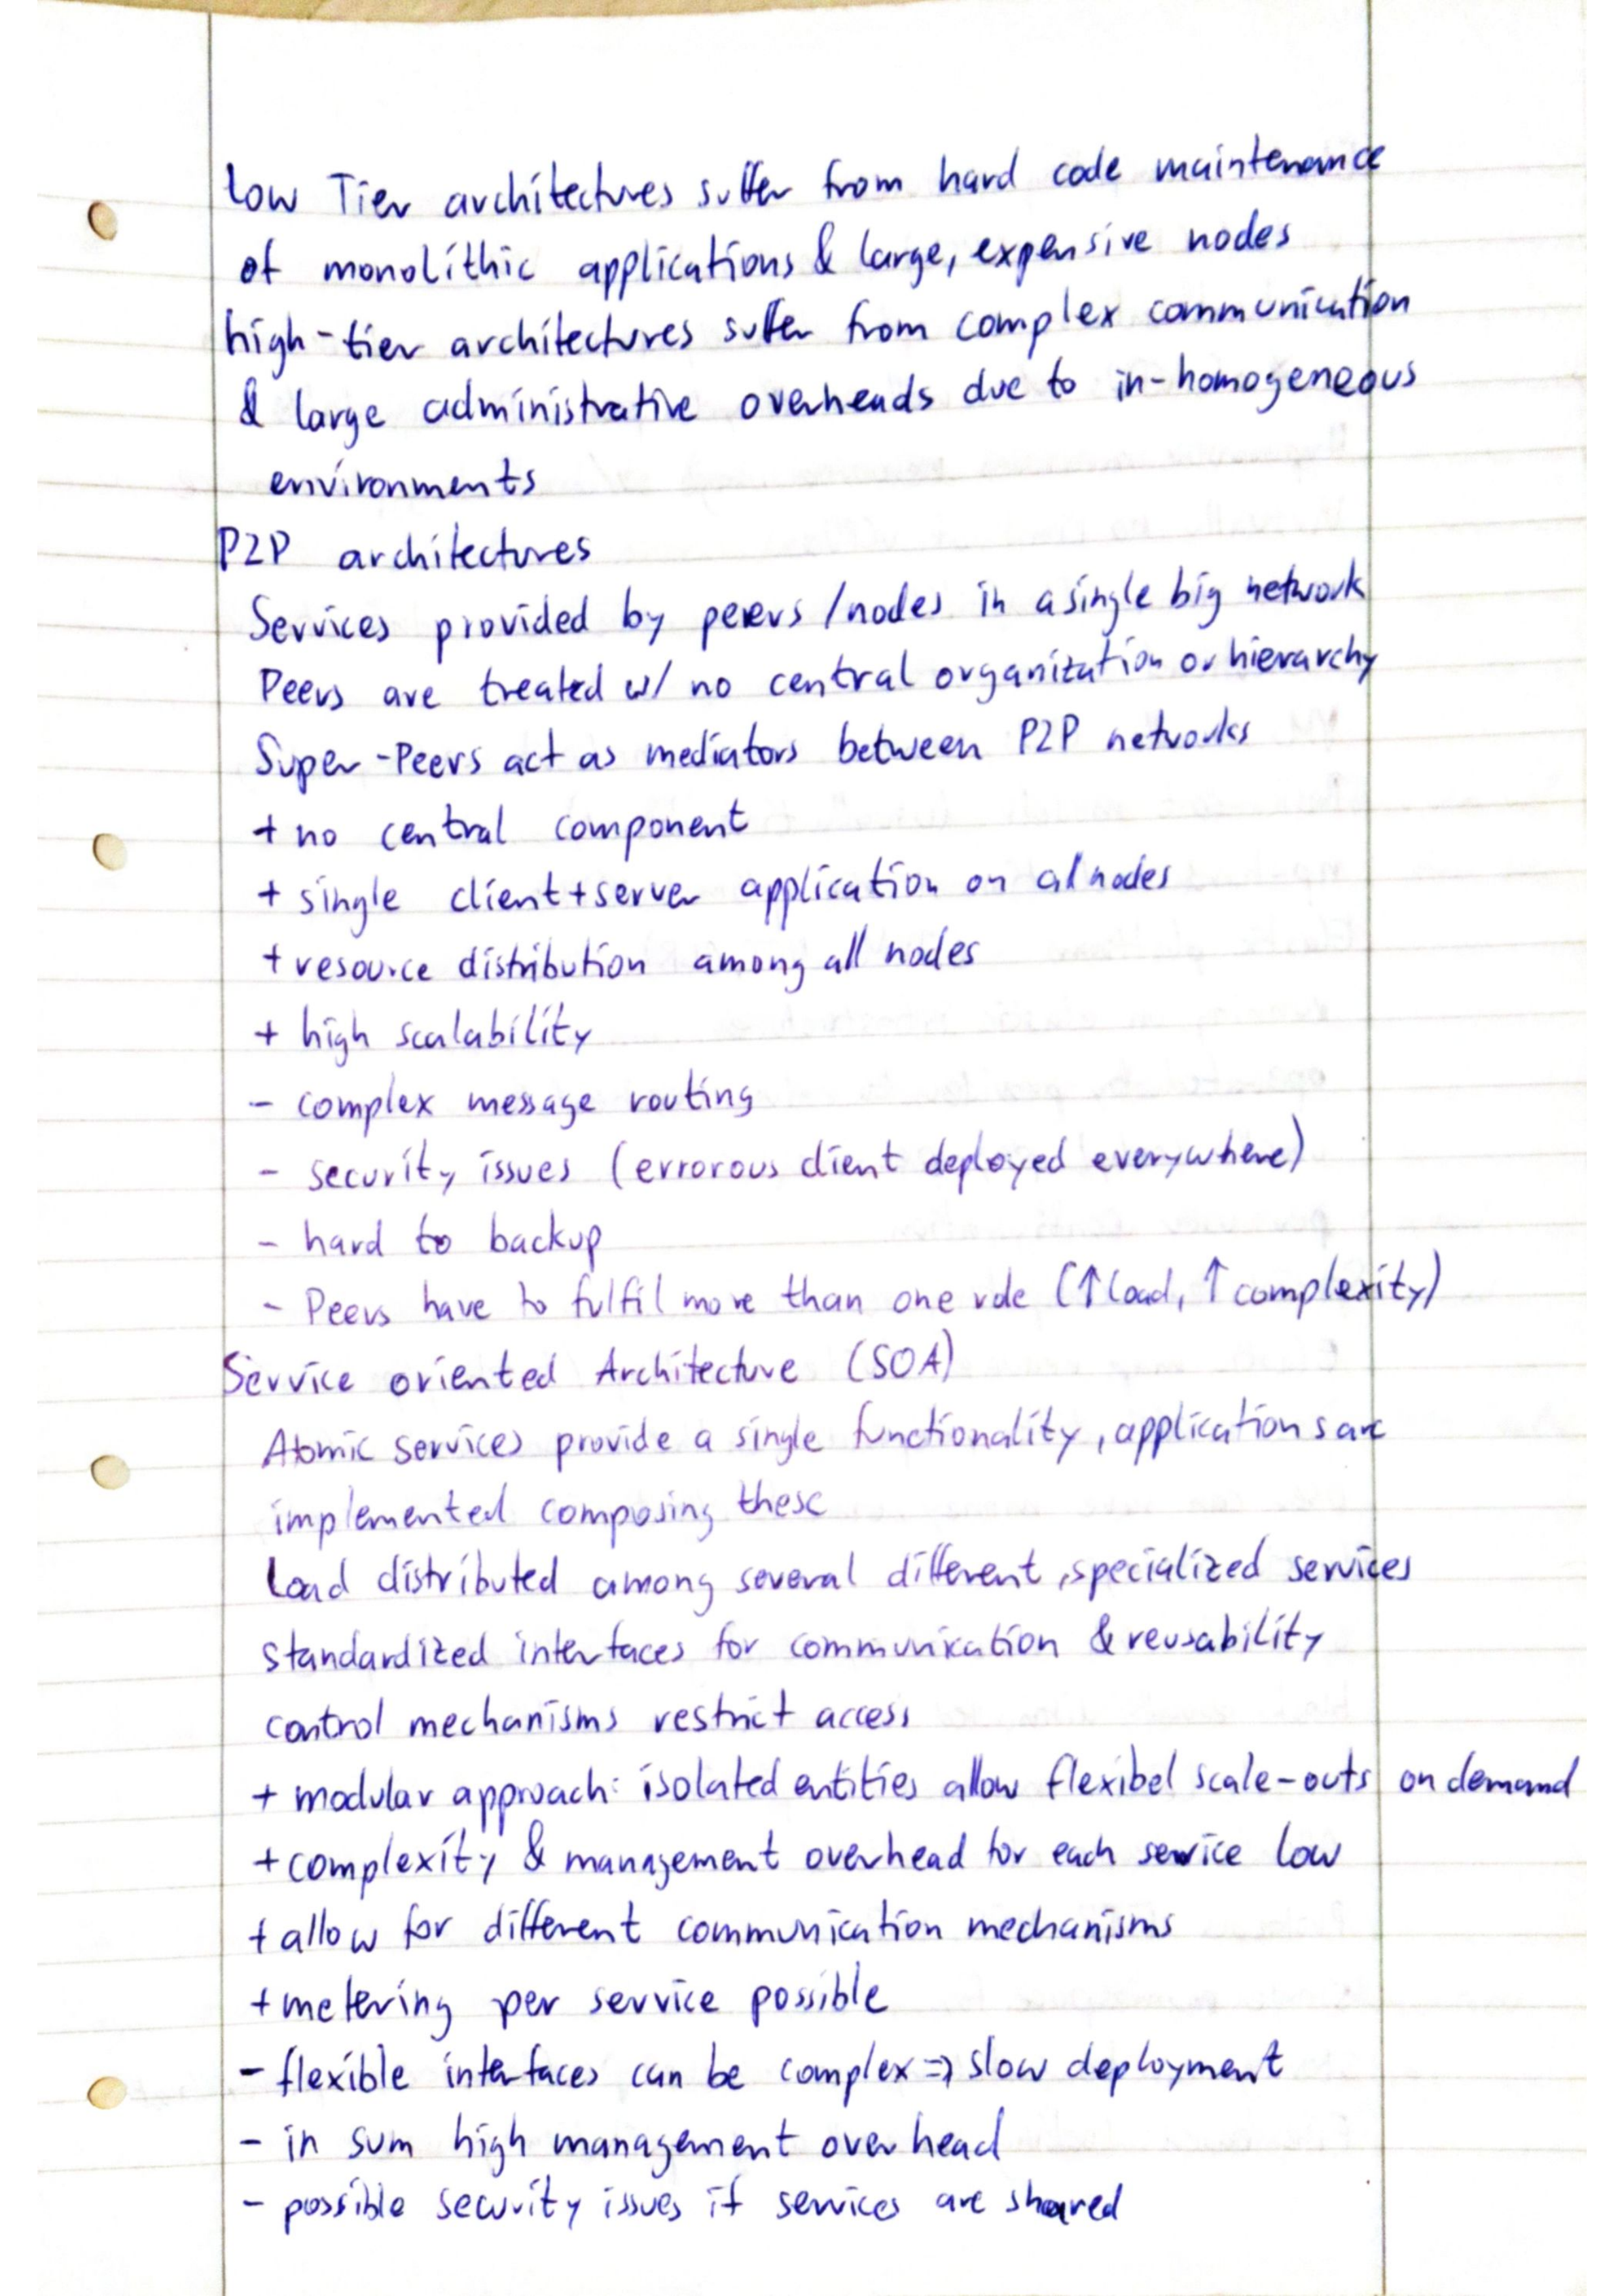 Low Tier architectures suffer from hard code maintenance
of monolithic applications & large, expensive nodes
high-tier architectures suffer from complex communication
& large administrative overheads due to in-homogeneous
environments
P2P architectures
Services provided by peers/nodes in a single big network
Peers are treated w/ no central organization or hierarchy
Super-Peers act as mediators between P2P networks
+ no central component
+ single client+server application on al nodes
+ resource distribution among all nodes
+ high scalability
- complex message routing
- security issues (errorous client deployed everywhere)
- hard to backup
- Peers have to fulfil more than one role (↑load, ↑complexity)
Service oriented Architecture (SOA)
Atomic services provide a single functionality, applications are
implemented composing these
Load distributed among several different, specialized services
standardized interfaces for communication & reusability
control mechanisms restrict access
+ modular approach: isolated entities allow flexibel scale-outs on demand
+ complexity & management overhead for each service low
+ allow for different communication mechanisms
+ metering per service possible
- flexible interfaces can be complex => slow deployment
- in sum high management overhead
- possible security issues if services are shared